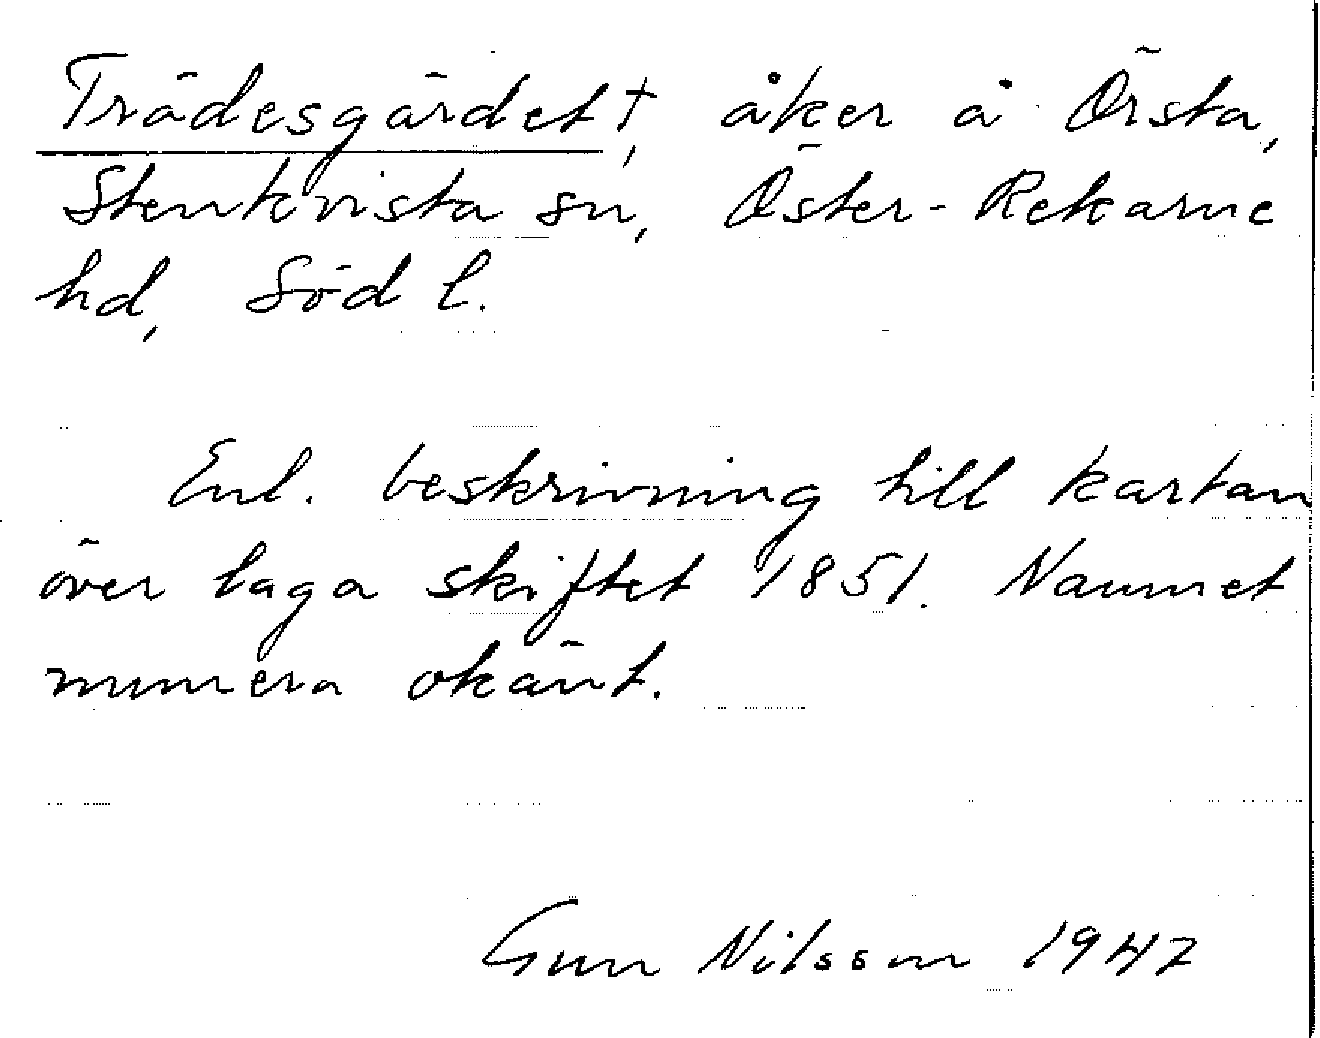 Trädesgärdet †, åker å Örsta,
Stenkvista sn, Öster-Rekarne
hd, Söd l.
Enl. beskrivning till kartan
över laga skiftet 1851. Namnet
numera okänt.
Gun Nilsson 1947